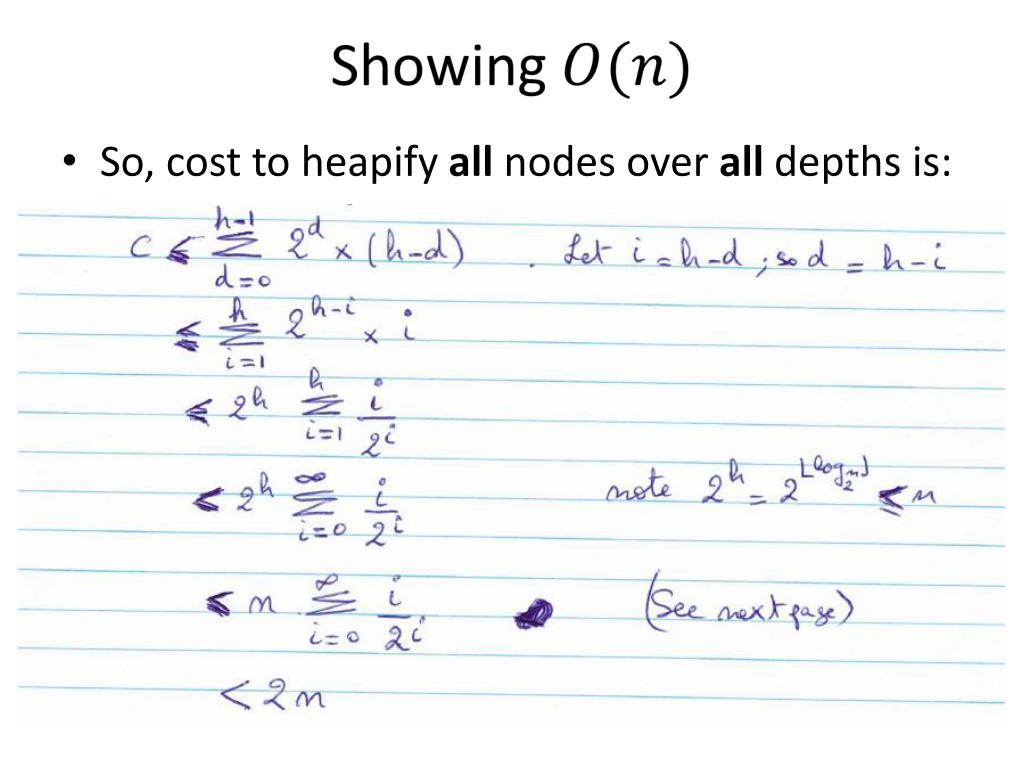 Showing 𝑂(𝑛)
• So, cost to heapify all nodes over all depths is:
C ≤ ∑_{d=0}^{h-1} 2^d × (h-d) . Let i = h-d ; so d = h-i
≤ ∑_{i=1}^{h} 2^{h-i} × i
≤ 2^h ∑_{i=1}^{h} i/2^i
≤ 2^h ∑_{i=0}^{∞} i/2^i note 2^h = 2^{⌊log_2 n⌋} ≤ n
≤ n ∑_{i=0}^{∞} i/2^i (See next page)
< 2n